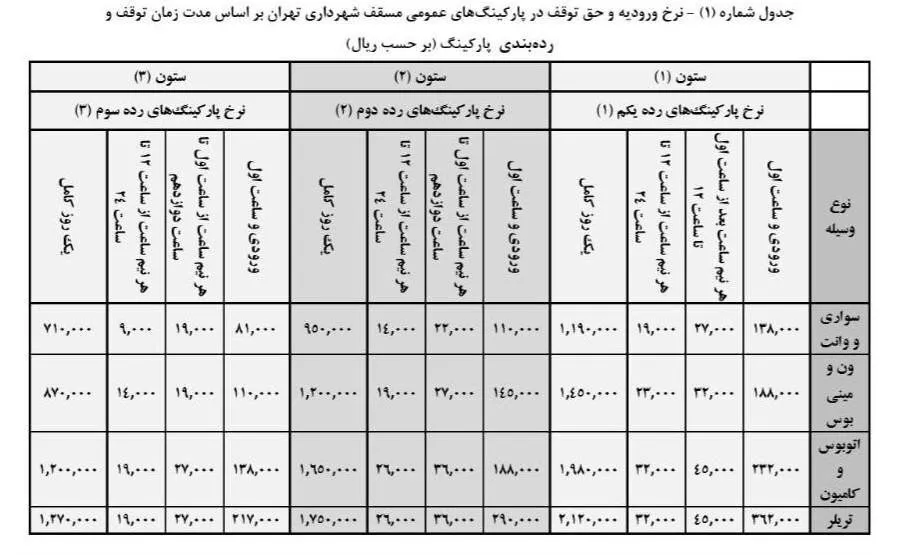 جدول شماره (۱) – نرخ ورودیه و حق توقف در پارکینگ‌های عمومی مسقف شهرداری تهران بر اساس مدت زمان توقف و
رده‌بندی پارکینگ (بر حسب ریال)
ستون (۱) ستون (۲) ستون (۳)
نرخ پارکینگ‌های رده یکم (۱) نرخ پارکینگ‌های رده دوم (۲) نرخ پارکینگ‌های رده سوم (۳)
نوع
وسیله
ورودی و ساعت اول
هر نیم ساعت بعد از ساعت اول
تا ساعت ۱۲
هر نیم ساعت از ساعت ۱۲ تا
ساعت ۲۴
یک روز کامل
ورودی و ساعت اول
هر نیم ساعت از ساعت اول تا
ساعت دوازدهم
هر نیم ساعت از ساعت ۱۲ تا
ساعت ۲۴
یک روز کامل
ورودی و ساعت اول
هر نیم ساعت از ساعت اول تا
ساعت دوازدهم
هر نیم ساعت از ساعت ۱۲ تا
ساعت ۲۴
یک روز کامل
سواری
و وانت
۱۳۸,۰۰۰ ۲۷,۰۰۰ ۱۹,۰۰۰ ۱,۱۹۰,۰۰۰ ۱۱۰,۰۰۰ ۲۲,۰۰۰ ۱۴,۰۰۰ ۹۵۰,۰۰۰ ۸۱,۰۰۰ ۱۹,۰۰۰ ۹,۰۰۰ ۷۱۰,۰۰۰
ون و
مینی
بوس
۱۸۸,۰۰۰ ۳۲,۰۰۰ ۲۳,۰۰۰ ۱,۴۵۰,۰۰۰ ۱۴۵,۰۰۰ ۲۷,۰۰۰ ۱۹,۰۰۰ ۱,۲۰۰,۰۰۰ ۱۱۰,۰۰۰ ۱۹,۰۰۰ ۱۴,۰۰۰ ۸۷۰,۰۰۰
اتوبوس
و
کامیون
۲۳۲,۰۰۰ ۴۵,۰۰۰ ۳۲,۰۰۰ ۱,۹۸۰,۰۰۰ ۱۸۸,۰۰۰ ۳۶,۰۰۰ ۲۶,۰۰۰ ۱,۶۵۰,۰۰۰ ۱۳۸,۰۰۰ ۲۷,۰۰۰ ۱۹,۰۰۰ ۱,۲۰۰,۰۰۰
تریلر ۳۶۲,۰۰۰ ۴۵,۰۰۰ ۳۲,۰۰۰ ۲,۱۲۰,۰۰۰ ۲۹۰,۰۰۰ ۳۶,۰۰۰ ۲۶,۰۰۰ ۱,۷۵۰,۰۰۰ ۲۱۷,۰۰۰ ۲۷,۰۰۰ ۱۹,۰۰۰ ۱,۲۷۰,۰۰۰